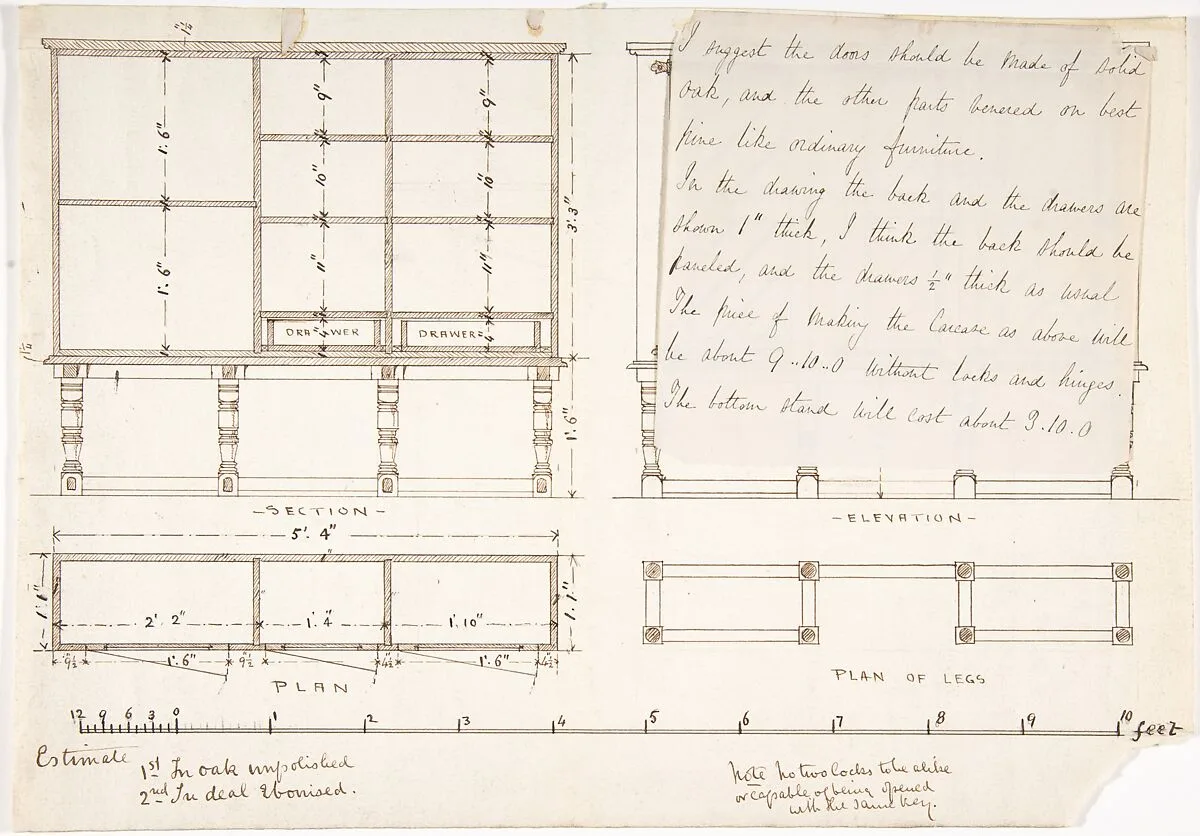 1¼"
I suggest the doors should be made of solid
oak, and the other parts venered on best
pine like ordinary furniture.
In the drawing the back and the drawers are
shown 1" thick, I think the back should be
paneled, and the drawers ½" thick as usual
The price of making the Carcase as above will
be about 9..10..0 without locks and hinges.
The bottom stand will cost about 3.10.0
1'.6"
9"
9"
10"
10"
3'.3"
1'.6"
11"
11"
DRAWER
4"
DRAWER
4"
1¼
1'.6"
-SECTION-
-ELEVATION-
5'. 4"
1'.1"
2'. 2"
1'. 4"
1'.10"
1'.1"
9½
1'.6"
9½
4½
1'.6"
4½
PLAN
PLAN OF LEGS
12 9 6 3 0 1 2 3 4 5 6 7 8 9 10 feet
Estimate
1st In oak unpolished
2nd In deal Ebonised.
Note No two locks to be alike
or capable of being opened
with the same key.